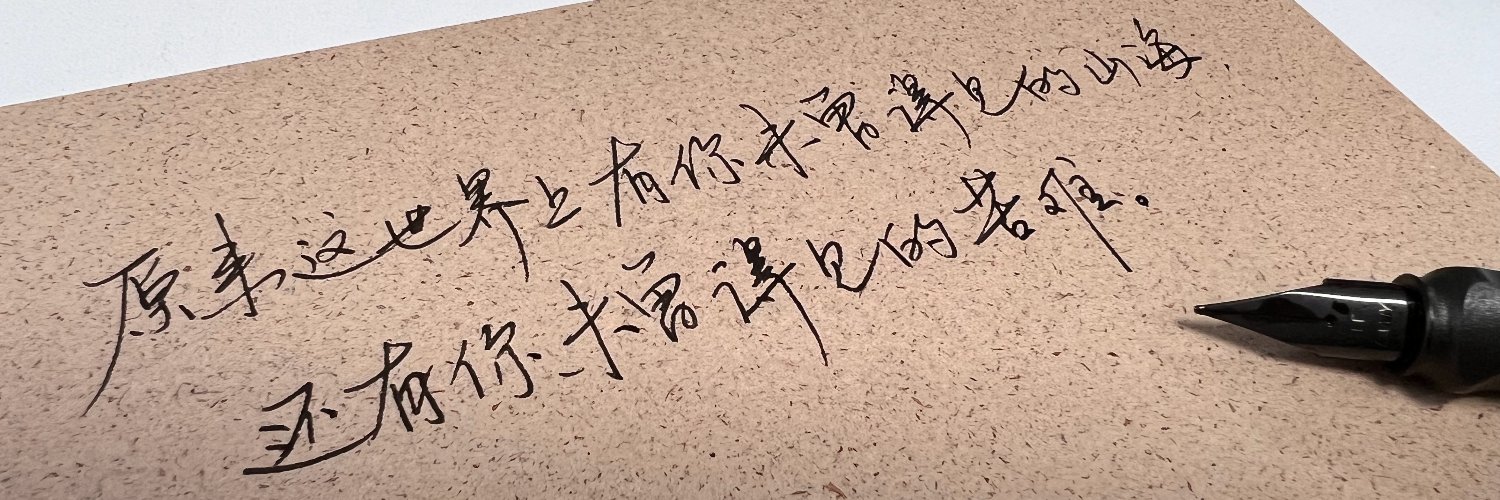 原来这世界上有你未曾得见的山海,
还有你未曾得见的苦难。